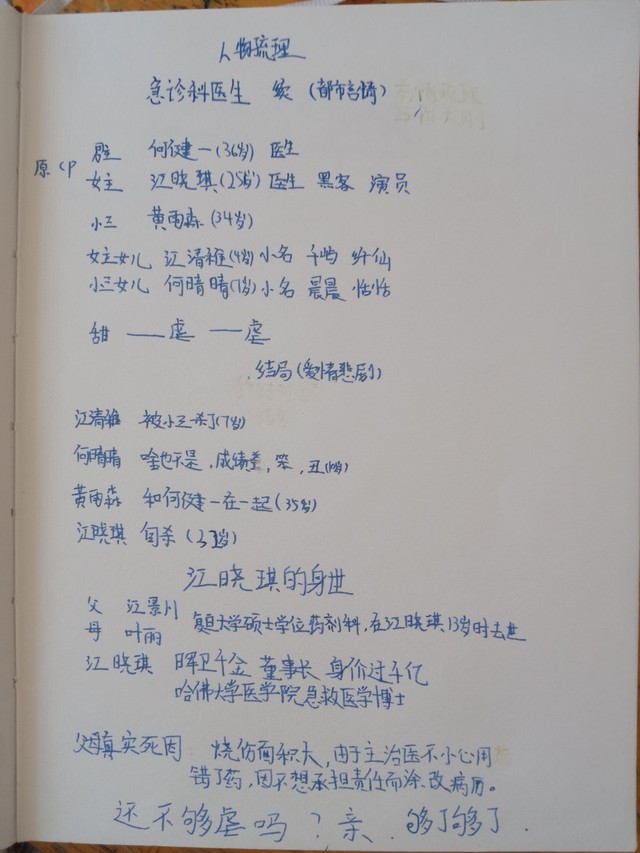 人物梳理
急诊科医生 续 (都市言情)
原CP
男主 何健一(36岁) 医生
女主 江晓琪(25岁) 医生 黑客 演员
小三 黄雨森(34岁)
女主女儿 江清雅(4岁) 小名 千屿 纤仙
小三女儿 何晴晴(7岁) 小名 晨晨 恬恬
甜 —— 虐 —— 虐
结局(爱情悲剧)
江清雅 被小三杀了(7岁)
何晴晴 啥也不是,成绩差,笨,丑(10岁)
黄雨森 和何健一在一起(35岁)
江晓琪 自杀
江晓琪的身世
父 江景川
母 叶丽
复旦大学硕士学位药剂科,在江晓琪13岁时去世
江晓琪 晖卫千金 董事长 身价过千亿
哈佛大学医学院急救医学博士
父母真实死因: 烧伤面积大,由于主治医不小心用
错了药,因不想承担责任而涂改病历。
还不够虐吗?亲.够了够了.